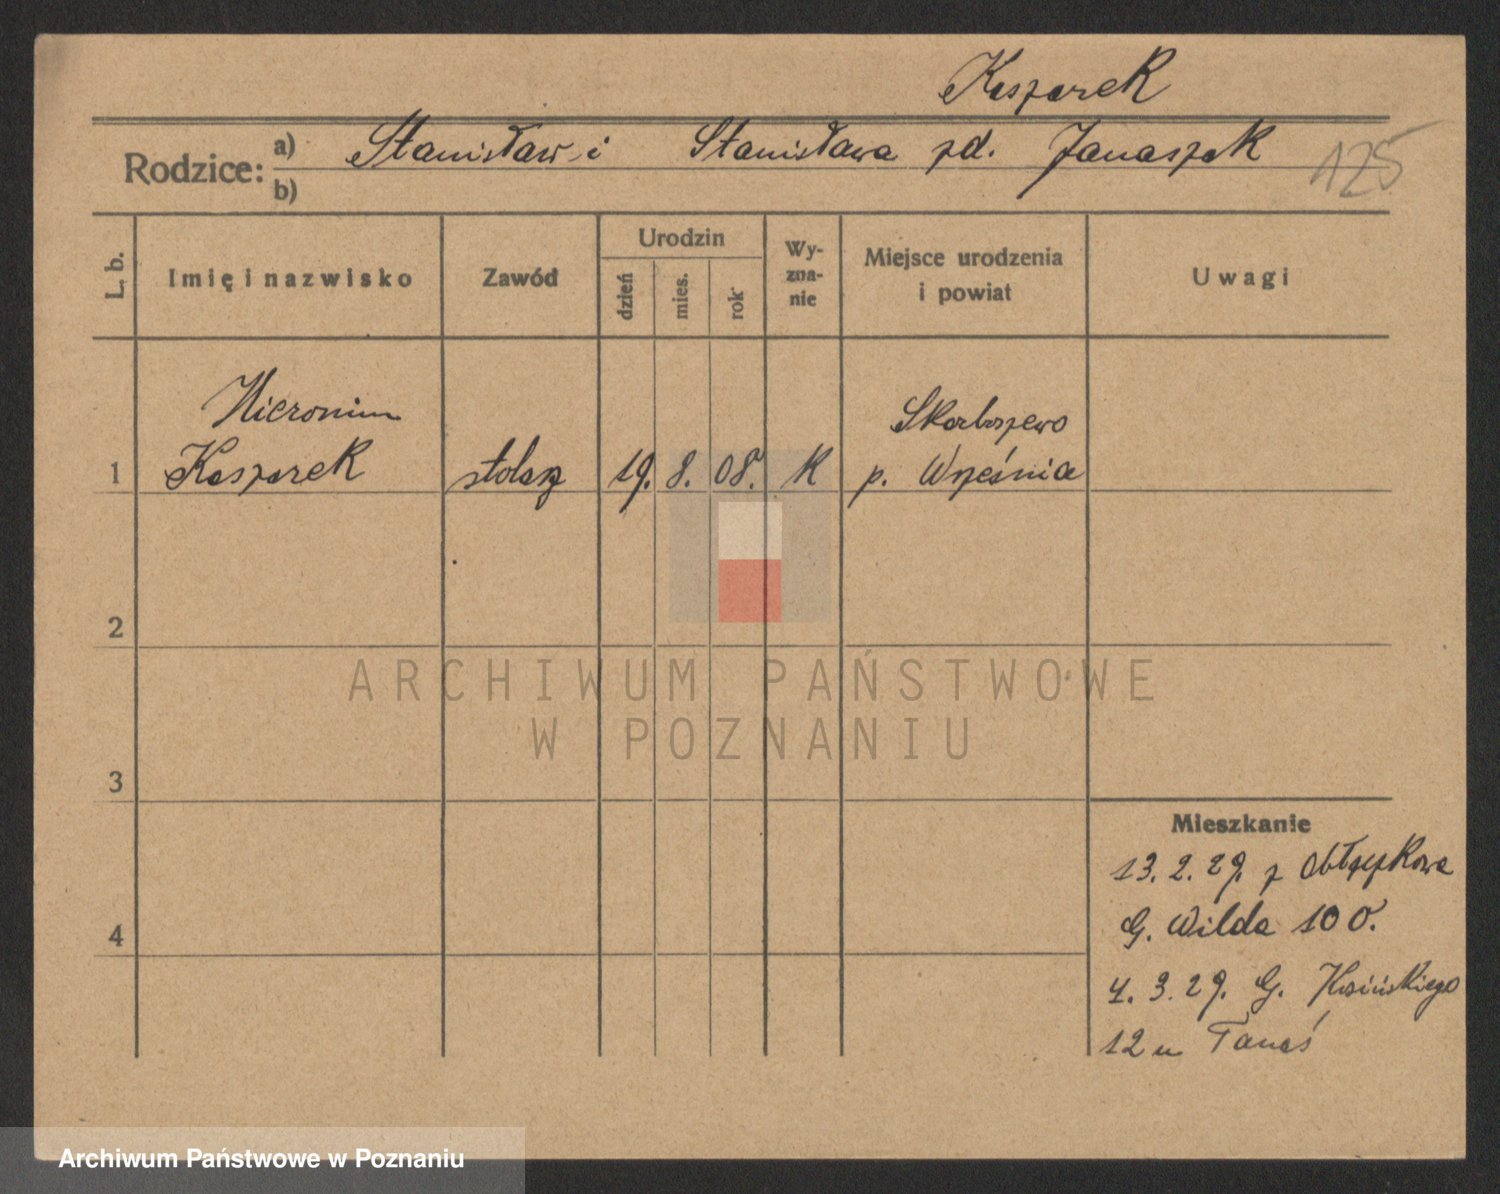 Kasparek
Rodzice: a) Stanisław i Stanisława zd. Janaszek
b)
125
L. b.
Imię i nazwisko
Zawód
Urodzin
dzień
mies.
rok
Wy-
zna-
nie
Miejsce urodzenia
i powiat
Uwagi
Hieronim
Kasparek
1
stolarz
19. 8. 08.
K
Skarboszewo
p. Września
2
3
4
Mieszkanie
13. 2. 29. z
G. Wilda 100.
4. 3. 29. G. Kosińskiego
12 u Tanaś
ARCHIWUM PAŃSTWOWE
W POZNANIU
Archiwum Państwowe w Poznaniu